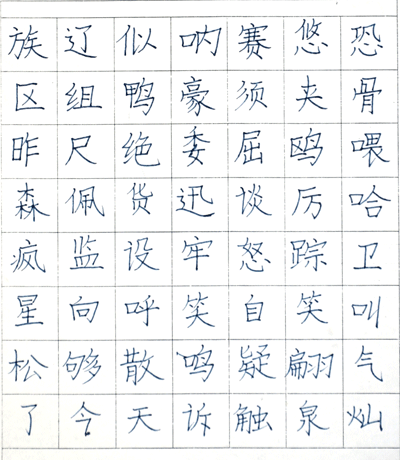 族辽似呐赛悠恐
区组鸭豪须夹骨
昨尺绝委屈鸥喂
森佩货迅谈厉哈
疯监设牢怒踪卫
星向呼笑自笑叫
松够散鸣疑翩气
了今天诉触泉灿